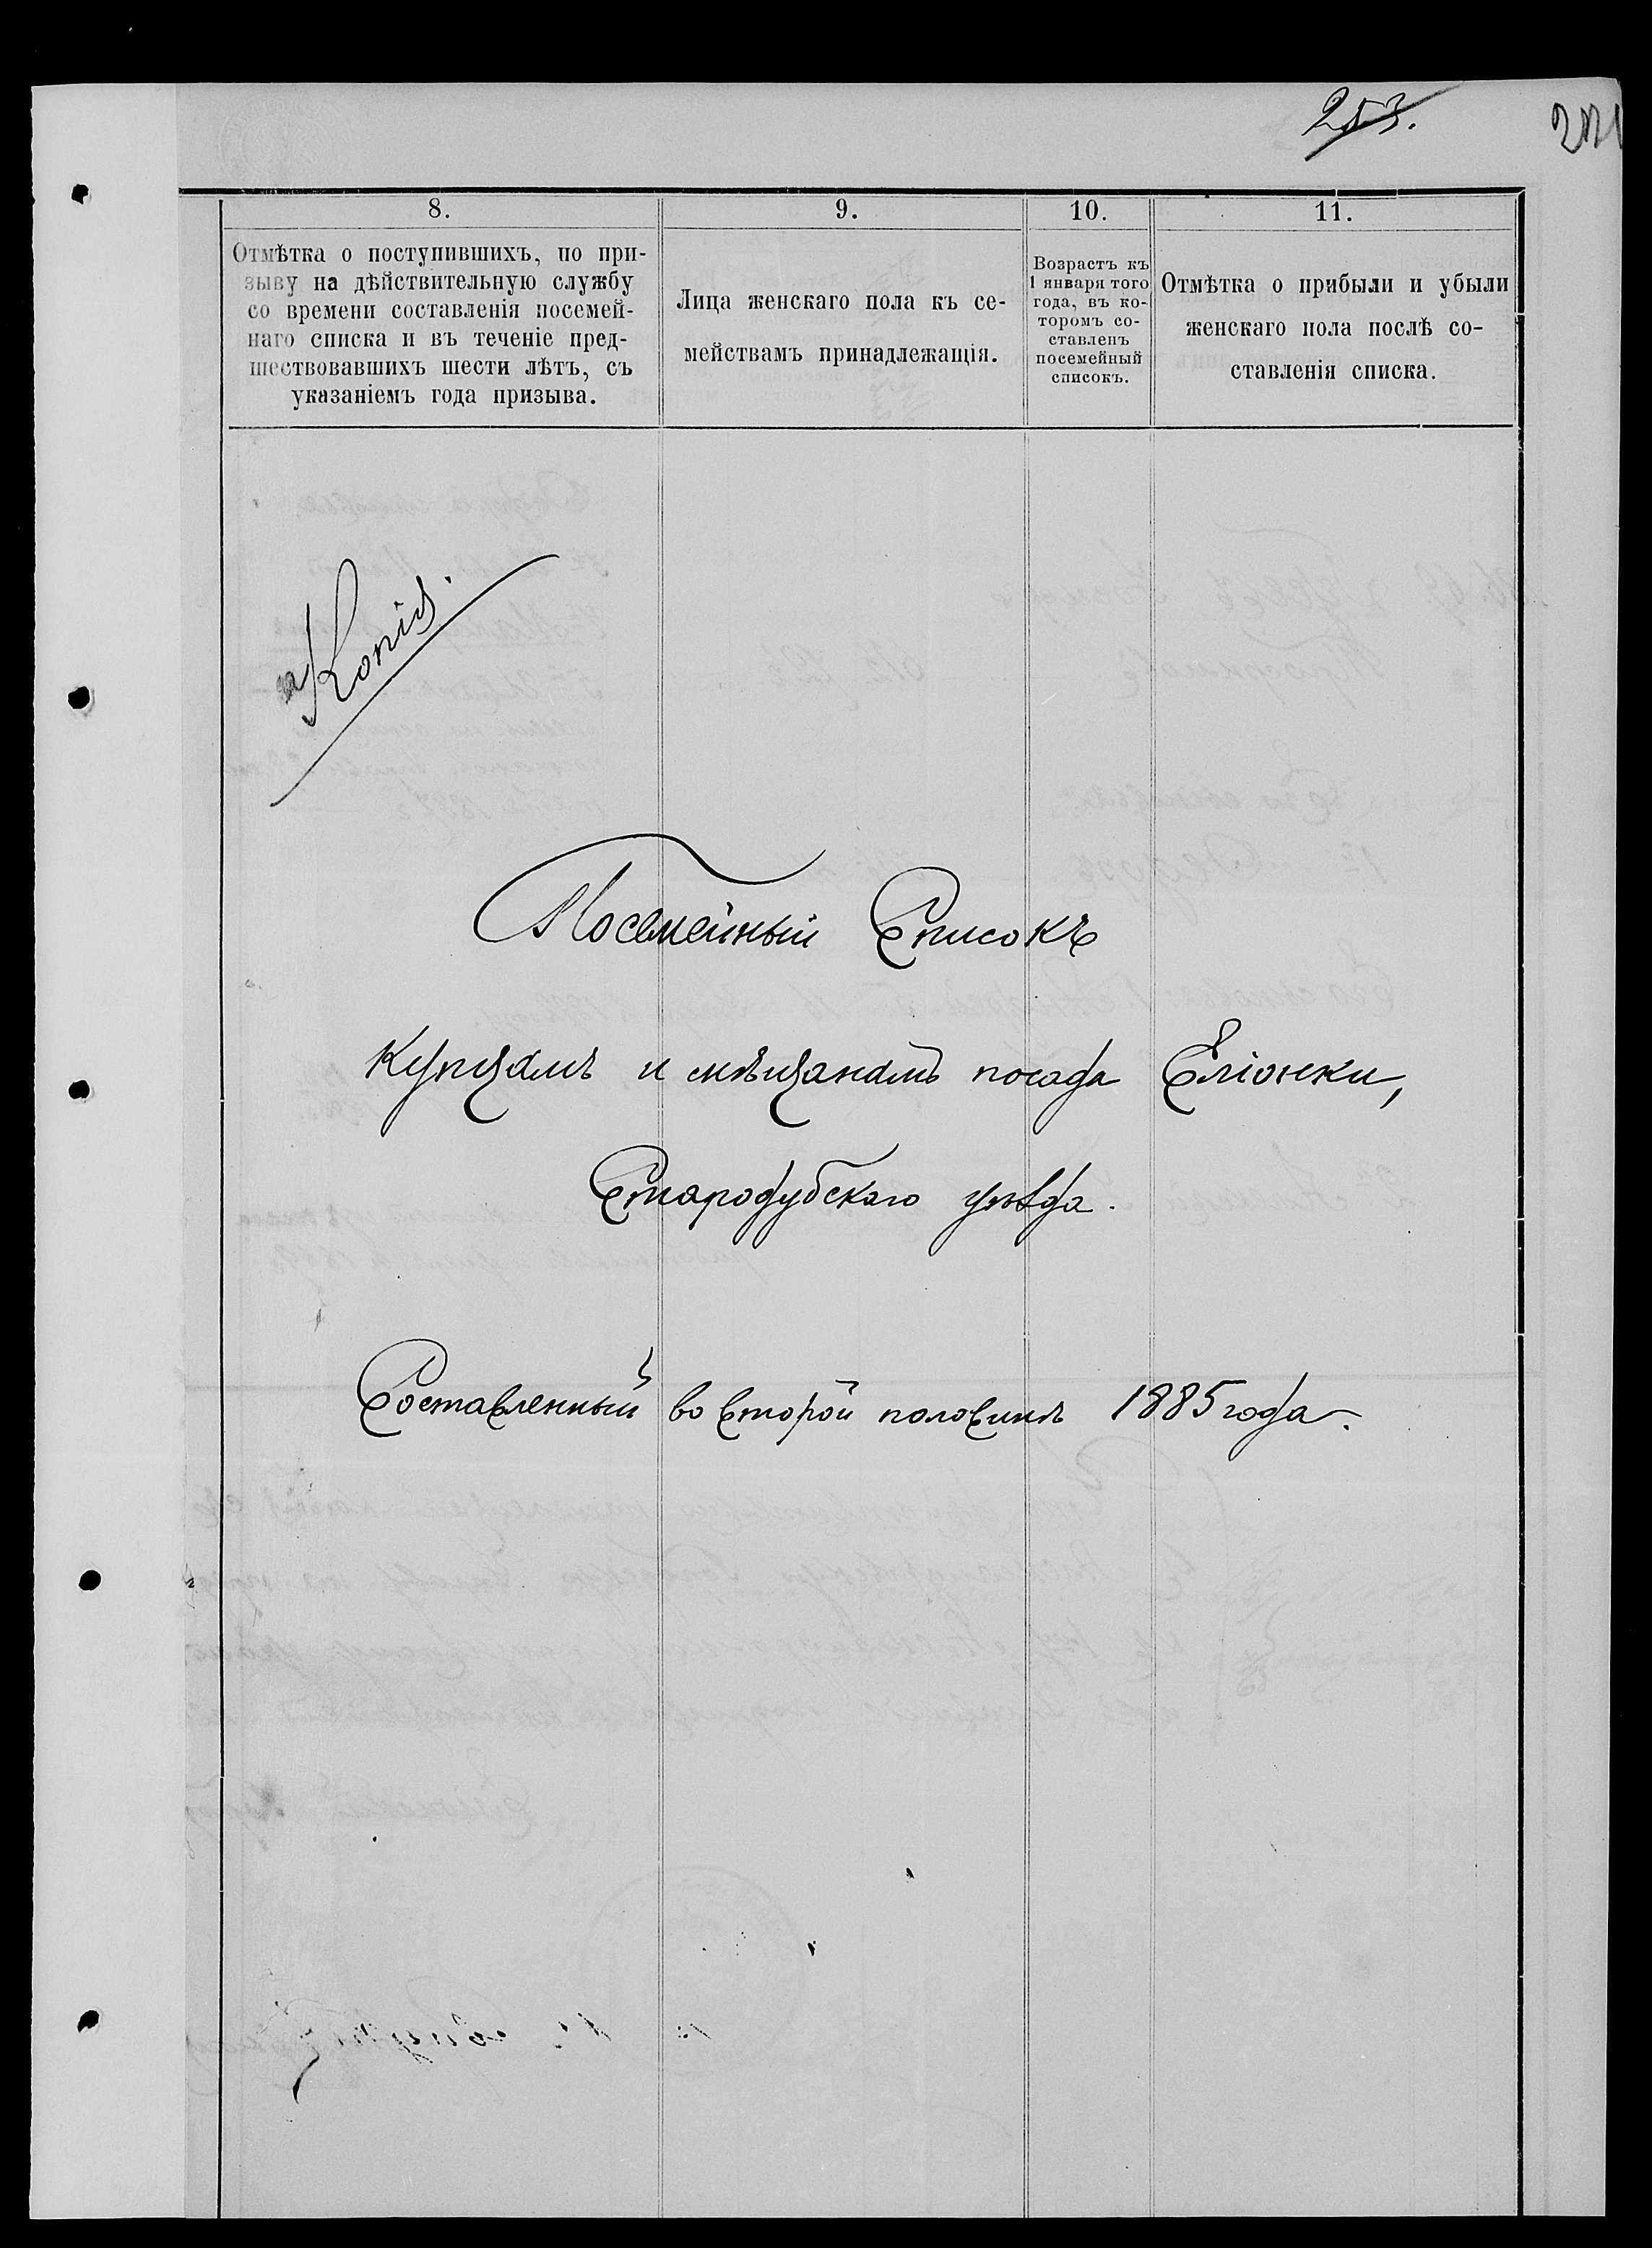 253.
8.
9.
10.
11.
Отмѣтка о поступившихъ, по при-
зыву на дѣйствительную службу
со времени составленія посемей-
наго списка и въ теченіе пред-
шествовавшихъ шести лѣтъ, съ
указаніемъ года призыва.
Лица женскаго пола къ се-
мействамъ принадлежащія.
Возрастъ къ
1 января того
года, въ ко-
торомъ со-
ставленъ
посемейный
списокъ.
Отмѣтка о прибыли и убыли
женскаго пола послѣ со-
ставленія списка.
Копія.
Посемейный Списокъ
Купцамъ и мѣщанамъ посада Еліонки,
Стародубскаго уѣзда.
Составленный во второй половинѣ 1885 года.